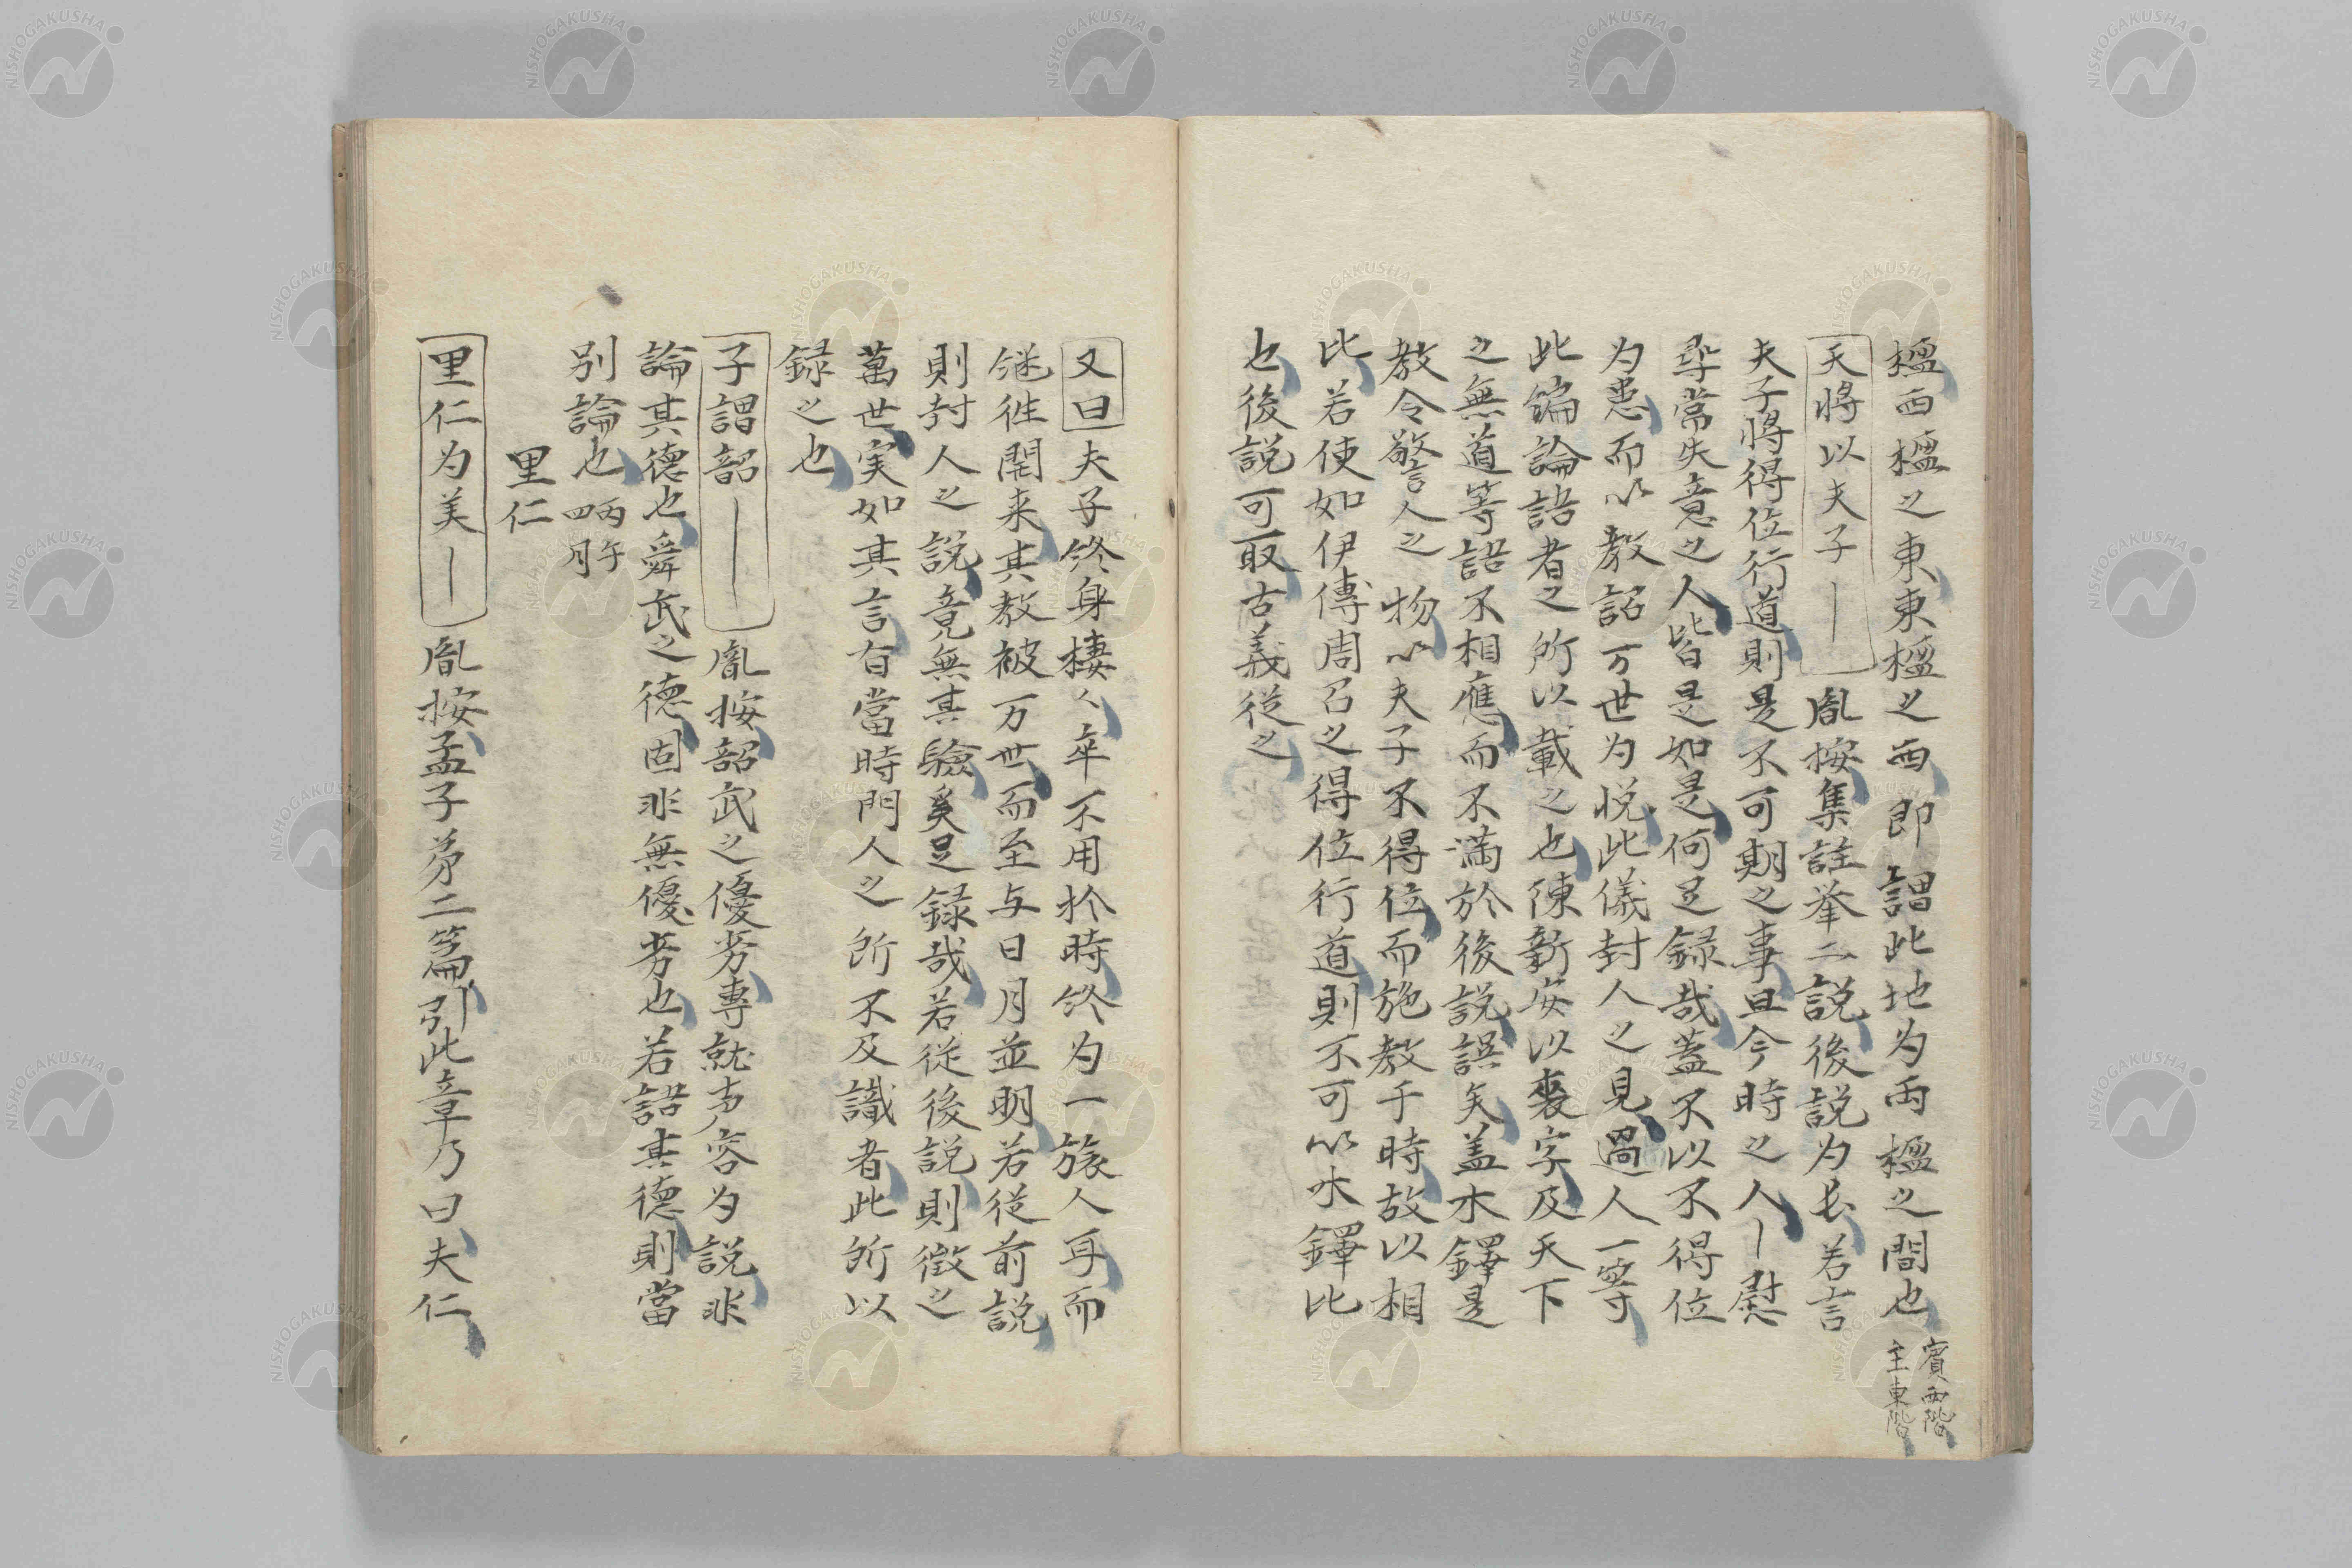 楹西楹之東東楹之西即謂此地为両楹之間也
賓西階
主東階
天將以夫子｜胤按集註挙二説後説为長若言
夫子將得位行道則是不可期之事且今時之人｜慰
尋常失意之人皆是如是何足録哉蓋不以不得位
为患而以教詔万世为悦此儀封人之見過人一等
此編論語者之所以載之也陳新安以喪字及天下
之無道等語不相應而不満於後説誤矣盖木鐸是
教令警人之物以夫子不得位而施教于時故以相
比若使如伊傅周召之得位行道則不可以木鐸比
也後説可取古義従之
又曰夫子終身棲々卒不用於時終为一旅人耳而
継徃開来其教被万世而至与日月並明若従前説
則封人之説竟無其驗奚足録哉若従後説則徴之
萬世実如其言有當時門人之所不及識者此所以
録之也
子謂韶｜胤按韶武之優劣專就声容为説非
論其德也舜武之德固非無優劣也若語其德則當
别論也 丙午
四月
里仁
里仁为美｜胤按孟子第二篇引此章乃曰夫仁
NISHOGAKUSHA